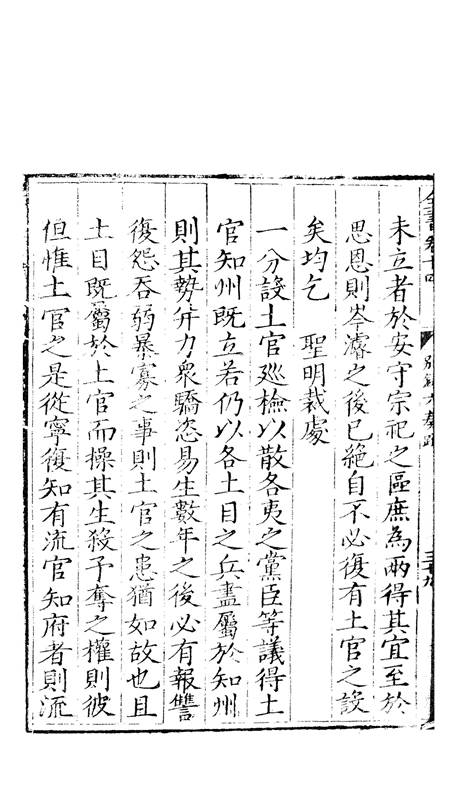 全書卷十四　別錄六奏疏
未立者於安守宗祀之區庶為兩得其宜至於
思恩則岑濬之後已絕自不必復有土官之設
矣均乞　聖明裁處
一分設土官廵檢以散各夷之黨臣等議得土
官知州既立若仍以各土目之兵盡屬於知州
則其勢并力衆驕恣易生數年之後必有報讐
復怨吞弱暴寡之事則土官之患猶如故也且
土目既屬於土官而操其生殺予奪之權則彼
但惟土官之是從寧復知有流官知府者則流